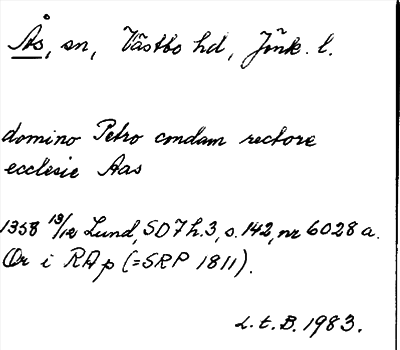 Ås, sn, Västbo hd, Jönk. l.
domino Petro condam rectore
ecclesie Aas
1358 13/12 Lund, SD 7 h. 3, s. 142, nr 6028 a.
Or i RA p (= SRP 1811).
L. t. B. 1983.